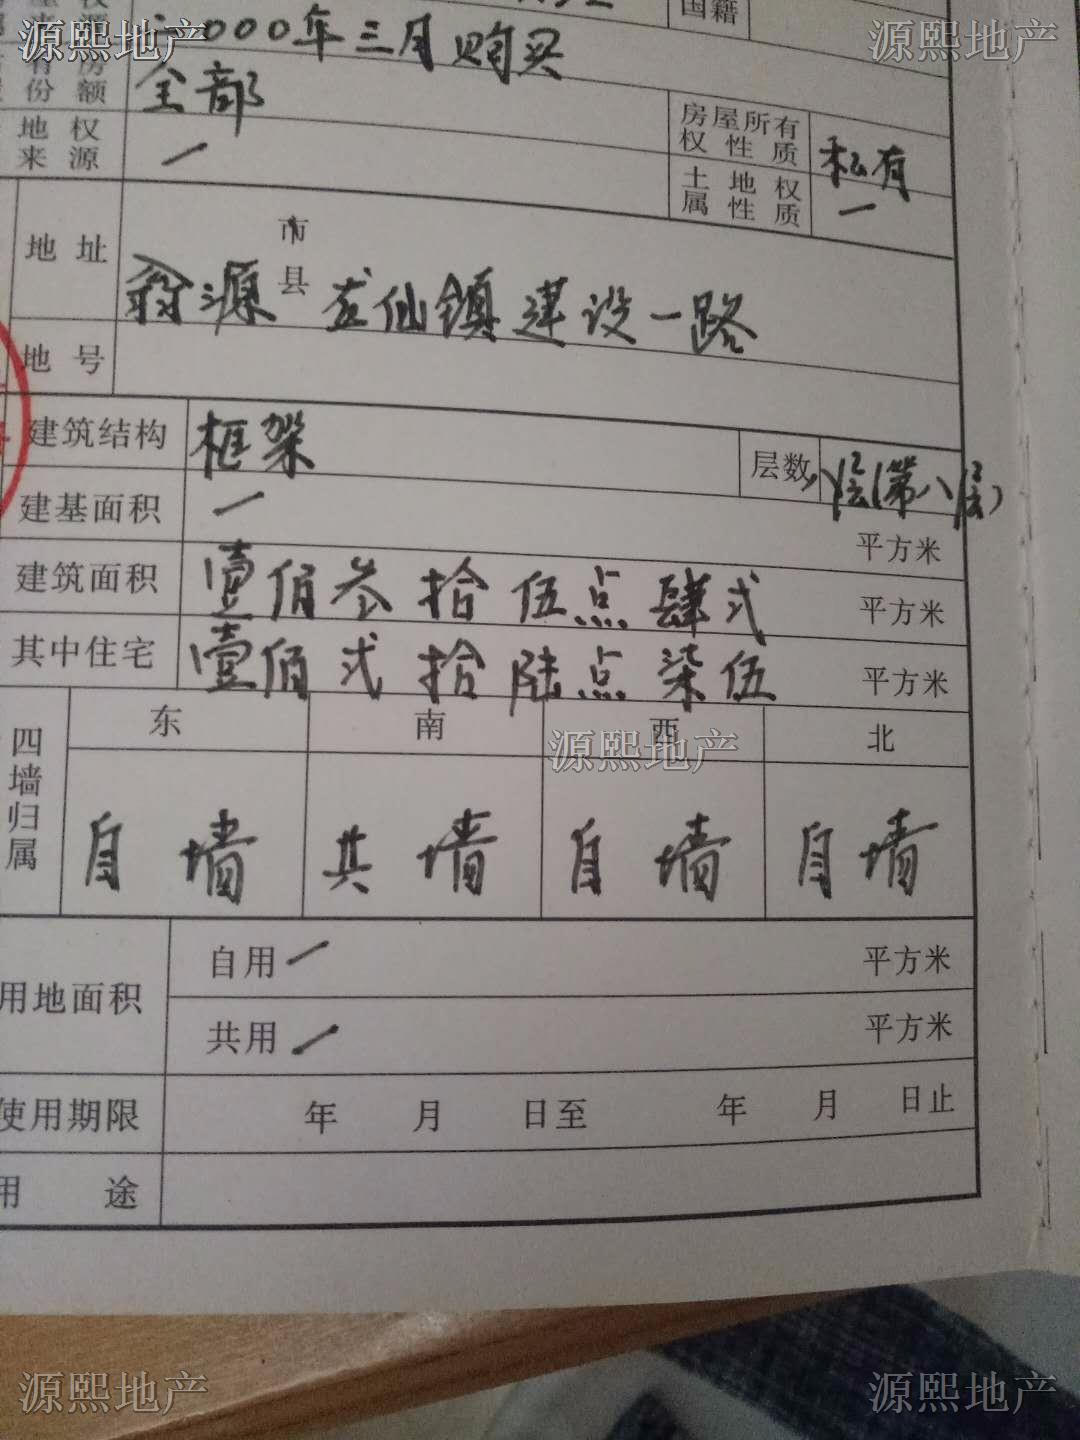 国籍
来源 2000年三月购买
有房份额 全部
房屋所有权性质 私有
地权来源 一
土地权属性质 一
地址 市
翁源县 龙仙镇建设一路
地号
建筑结构 框架 层数 层(第八层)
建基面积 一 平方米
建筑面积 壹佰叁拾伍点肆弍 平方米
其中住宅 壹佰弍拾陆点柒伍 平方米
四墙归属 东 南 西 北
自墙 共墙 自墙 自墙
用地面积 自用 一 平方米
共用 一 平方米
使用期限 年 月 日至 年 月 日止
用途
源熙地产
源熙地产
源熙地产
源熙地产
源熙地产